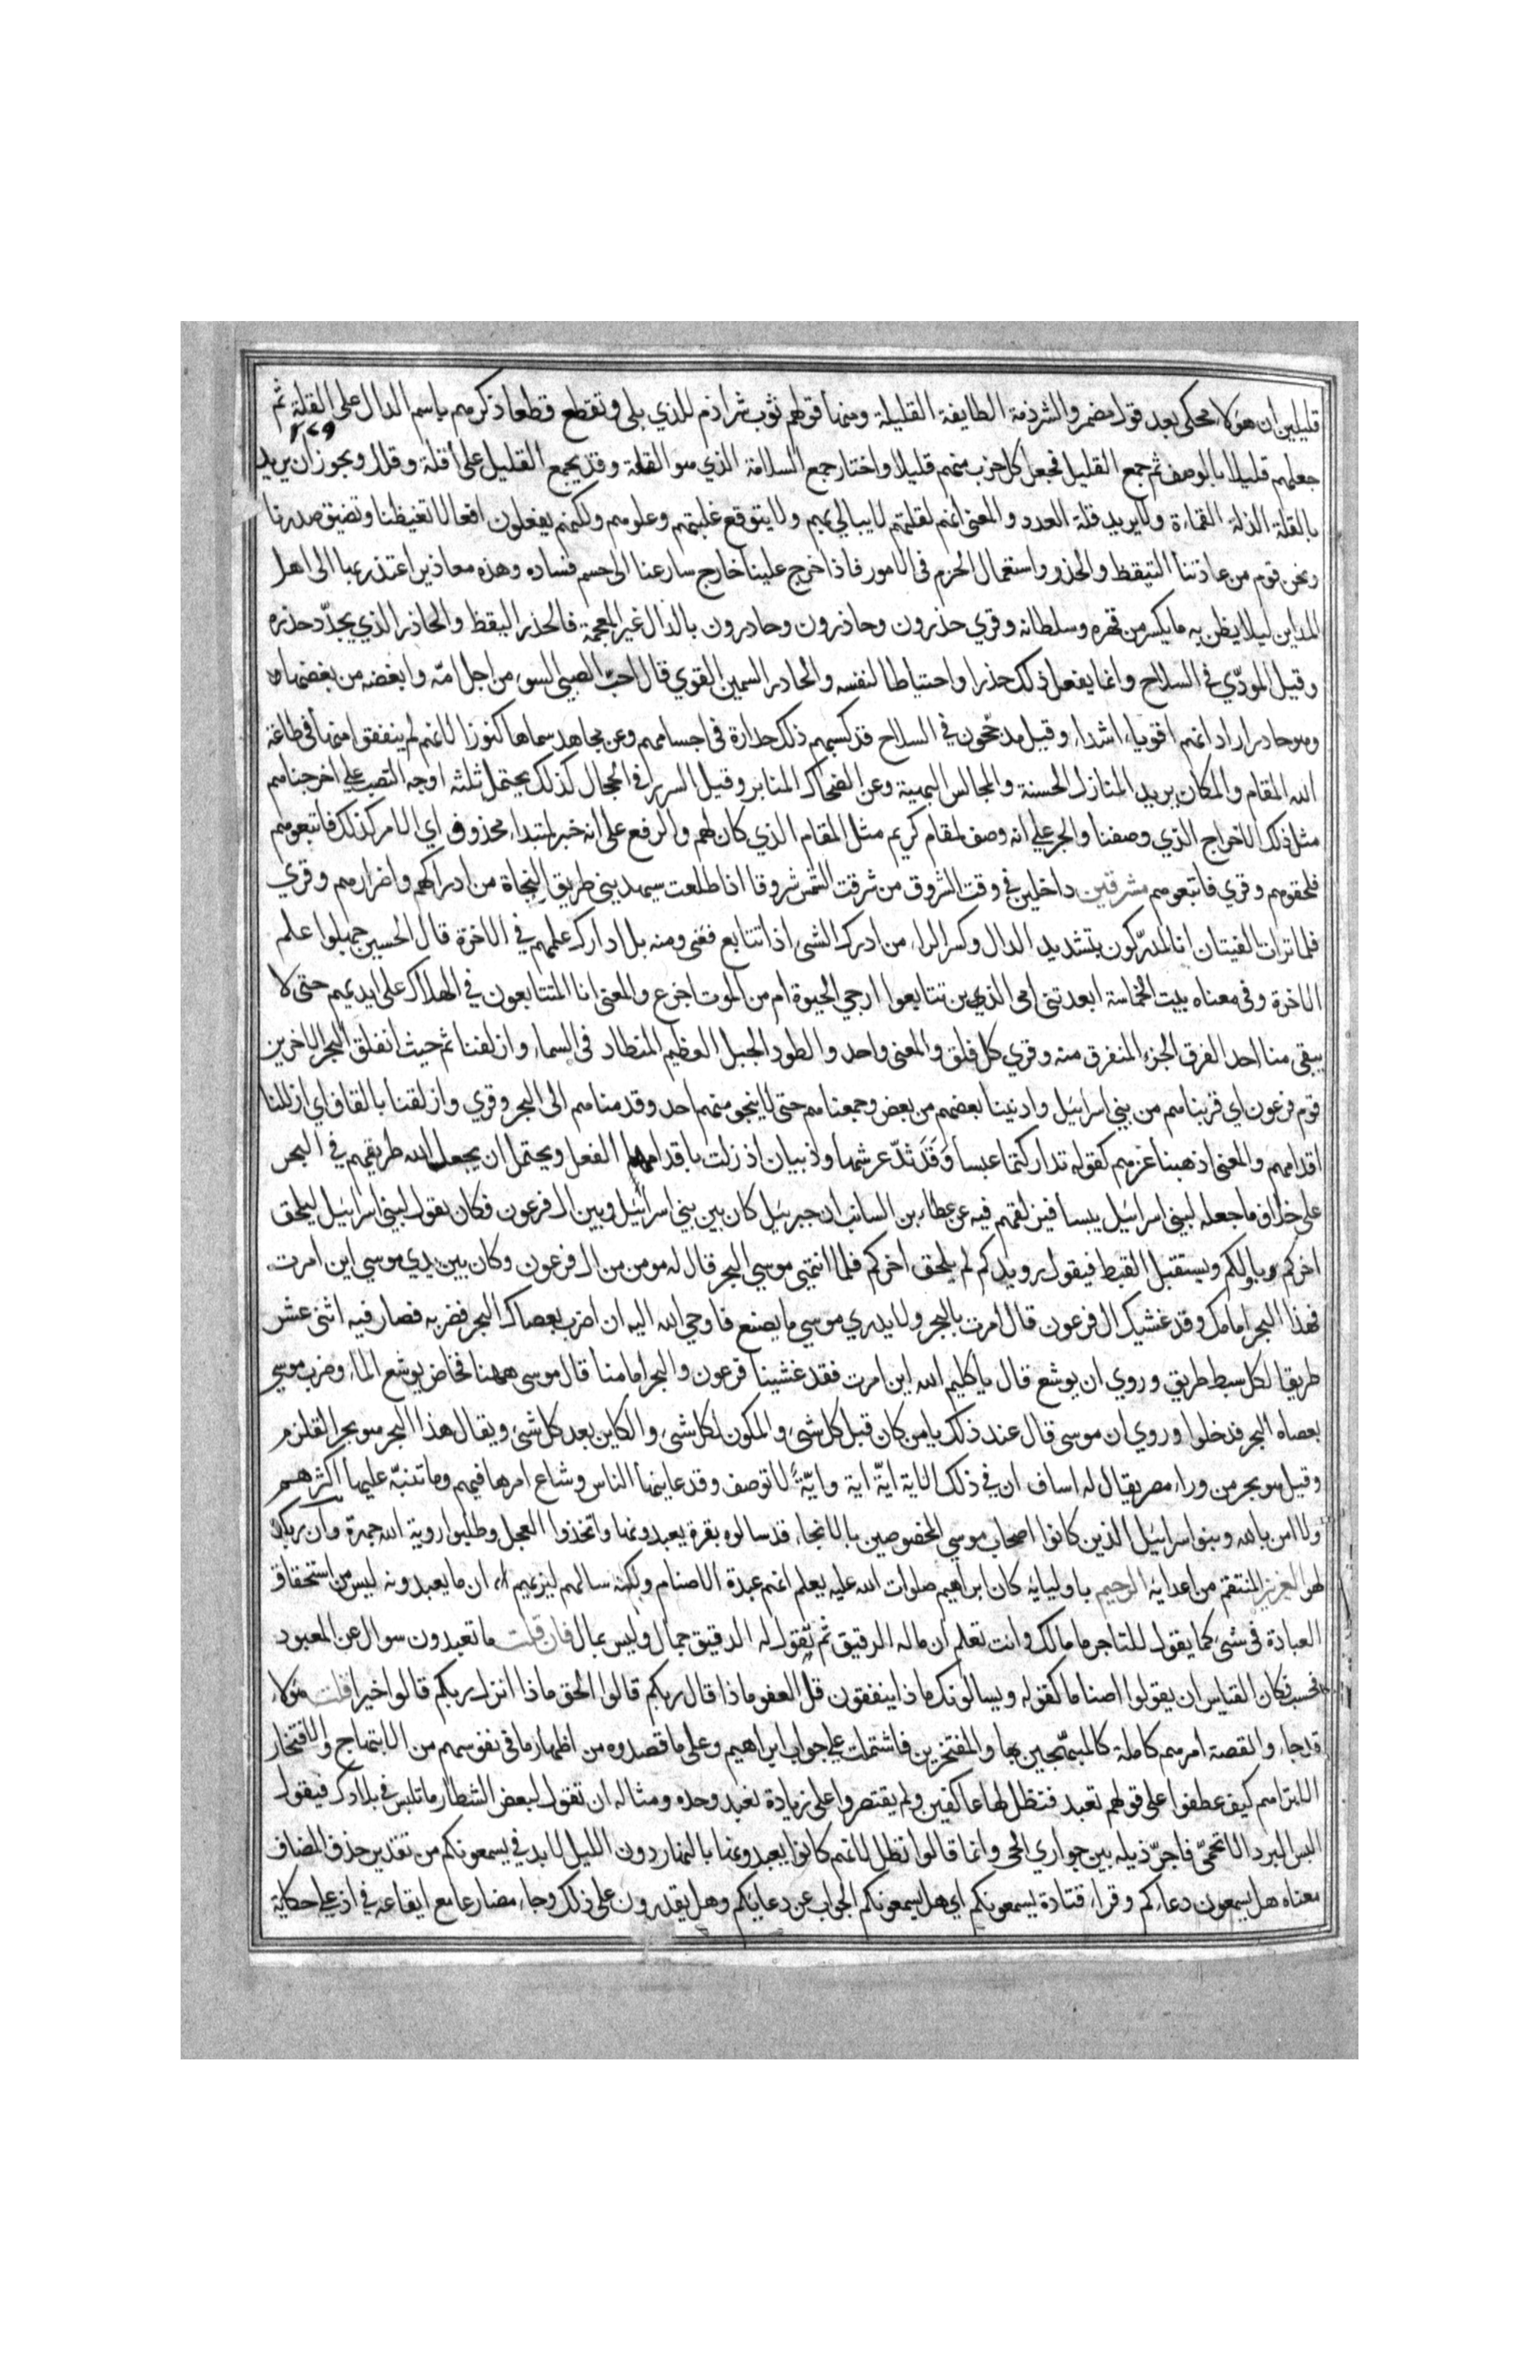 قليلين ان هولاء محكى بعد قول مضمر والشرذمة الطايفة القليلة ومنها قولهم ثوب شراذم للذي بلى وتقطع قطعا ذكرهم باسم الدال على القلة ثم
٢٧٩
جعلهم قليلا بالوصف ثم جمع القليل فجعل كل حزب منهم قليلا واختار جمع السلامة الذي هو القلة وقد يجمع القليل على أقلة وقلل ويجوز ان يريد
بالقلة الذلة القماءة ولا يريد قلة العدد والمعنى انهم لقلتهم لا يبالي بهم ولا يتوقع غلبتهم وعلوهم ولكنهم يفعلون افعالا تغيظنا وتضيق صدورنا
ونحن قوم من عادتنا التيقظ والحذر واستعمال الحزم في الامور فاذا خرج علينا خارج سارعنا الى حسم فساده وهذه معاذير اعتذر بها الى اهل
المداين ليلا يظن به ما يكسر من قهره وسلطانه وقري حذرون وحاذرون وحادرون بالدال غير المعجمة فالحذر اليقظ والحاذر الذي يجدّد حذره
وقيل المودّي في السلاح وانما يفعل ذلك حذرا واحتياطا لنفسه والحادر السمين القوي قال احبّ الصبي السوء من اجل امّه وابغضه من بغضها
وهو حادر اراد انهم اقوياء اشداء وقيل مدججون في السلاح قد كسبهم ذلك حدارة في اجسامهم وعن مجاهد سماها كنوزا لانهم لم ينفقوا منها في طاعة
الله المقام والمكان يريد المنازل الحسنة والمجالس البهية وعن الضحاك المنابر وقيل السرر في الحجال كذلك يحتمل ثلثة اوجه النصب علي اخرجناهم
مثل ذلك الاخراج الذي وصفنا والجر علي انه وصف لمقام كريم مثل المقام الذي كان لهم والرفع على انه خبر لمبتداء محذوف اي الامر كذلك فاتبعوهم
فلحقوهم وقري فاتبعوهم مشرقين داخلين في وقت الشروق من شرقت الشمس شروقا اذا طلعت سيهديني طريق النجاة من ادراكهم واضرارهم وقري
فلما تراات الفيتان انا لمدّركون بتشديد الدال وكسر الراء من ادرك الشي اذا تتابع ففنى ومنه بل ادارك علمهم في الاخرة قال الحسين جهلوا علم
الاخرة وفي معناه بيت الحماسة ابعد بني امي الذين تتابعوا ارجي الحيوة ام من الموت اجزع والمعنى انا المتتابعون في الهلاك على ايديهم حتى لا
يبقى منا احد الفرق الجزء المتفرق منه وقري كل فلق والمعنى واحد والطود الجبل العظيم المنطاد في السماء وازلفنا ثم حيث انفلق البحر الاخرين
قوم فرعون اي قربناهم من بني اسرايل وادنينا بعضهم من بعض وجمعناهم حتى لا ينجو منهم احد وقدمناهم الى البحر وقري وازلقنا بالقاف اي ازللنا
اقدامهم والمعنى اذهبنا عزهم كقوله تداركتما عبسا وقد ثلّ عرشها وذبيان اذ زلت باقدامها الفعل ويحتمل ان يجعل الله طريقهم في البحر
على خلاف ما جعله لبني اسرايل يبسا فيزلقهم فيه عن عطاء بن السائب ان جبريل كان بين بني اسرايل وبين ال فرعون فكان يقول لبني اسرايل ليلحق
اخركم باولكم ويستقبل القبط فيقول رويدكم لم يلحق اخركم فلما انتهى موسي البحر قال له مومن من ال فرعون وكان بين يدي موسي اين امرت
فهذا البحر امامك وقد غشيك ال فرعون قال امرت بالبحر ولا يدري موسي ما يصنع فاوحي الله اليه ان اضرب بعصاك البحر فضربه فصار فيه اثنى عشر
طريقا لكل سبط طريق وروي ان يوشع قال يا كليم الله اين امرت فقد غشينا فرعون والبحر امامنا قال موسى ههنا فخاض يوشع الماء وضرب موسي
بعصاه البحر فدخلوا وروي ان موسى قال عند ذلك يا من كان قبل كل شي والمكون لكل شي والكاين بعد كل شي ويقال هذا البحر هو بحر القلزم
وقيل هو بحر من وراء مصر يقال له اساف ان في ذلك لاية ايّة اية وايّة لا توصف وقد عاينها الناس وشاع امرها فيهم وما تنبّه عليها اكثرهم
ولا امن بالله وبنو اسرايل الذين كانوا اصحاب موسي المخصوصين بالانجاء قد سالوه بقرة يعبدونها واتخذوا العجل وطلبوا روية الله جهرة وان ربك
لهو العزيز المنتقم من اعدايه الرحيم باوليايه كان ابراهيم صلوات الله عليه يعلم انهم عبدة الاصنام ولكنه سالهم ليريهم ان ما يعبدونه ليس من استحقاق
العبادة في شي كما يقول للتاجر ما مالك وانت تعلم ان ماله الرقيق ثم تقول له الرقيق جمال وليس بمال فان قلت ما تعبدون سوال عن المعبود
فحسب فكان القياس ان يقولوا اصناما كقوله ويسالونك ماذا ينفقون قل العفو ماذا قال ربكم قالوا الحق ماذا انزل ربكم قالوا خيرا قلت هولاء
قد جاء والقصة امرهم كاملة كالمبتهجين بها والمفتخرين فاشتملت علي جواب ابراهيم وعلى ما قصدوه من اظهار ما في نفوسهم من الابتهاج والافتخار
الا تراهم كيف عطفوا على قولهم نعبد فنظل لها عاكفين ولم يقتصروا على زيادة نعبد وحده ومثاله ان تقول لبعض الشطار ما تلبس في بلادك فيقول
البس البرد الاتحميّ فاجرّ ذيله بين جواري الحي وانما قالوا نظل لانهم كانوا يعبدونها بالنهار دون الليل لا بد في يسمعونكم من تقدير حذف المضاف
معناه هل يسمعون دعاءكم وقراء قتادة يسمعونكم اي هل يسمعونكم الجواب عن دعايكم وهل يقدرون على ذلك وجاء مضارعا مع ايقاعه في اذ علي حكاية